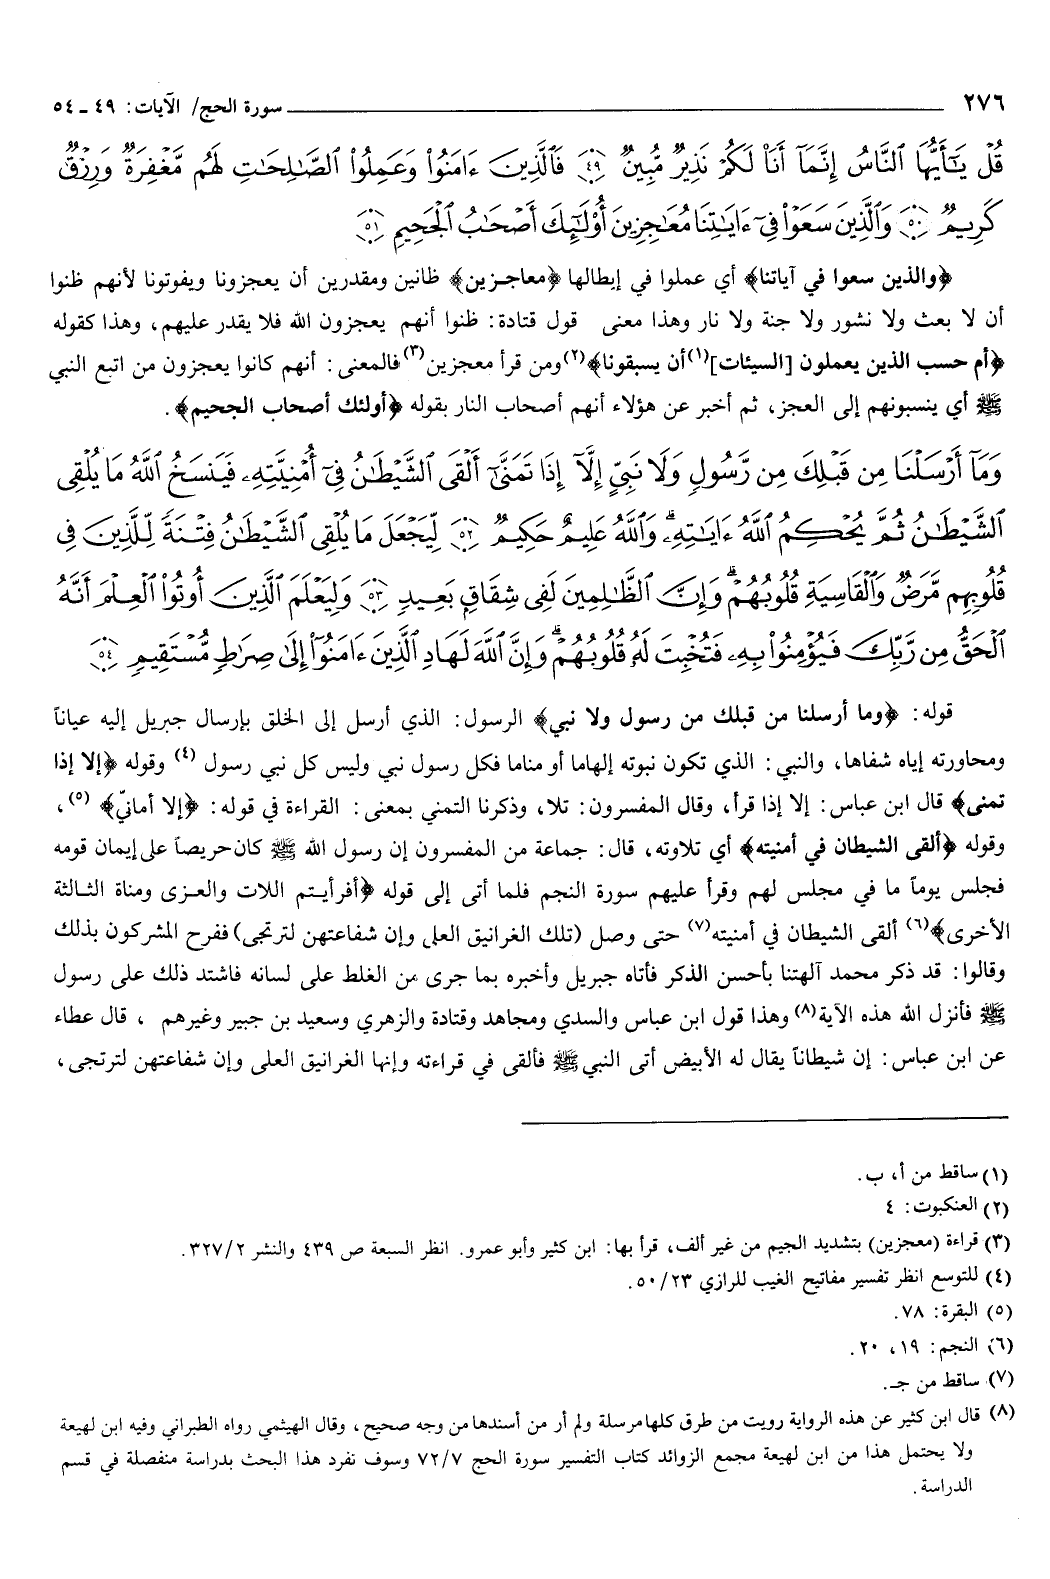 ٢٧٦ سورة الحج/ الآيات: ٤٩ ـ ٥٤
قُلْ يَٰٓأَيُّهَا ٱلنَّاسُ إِنَّمَآ أَنَا۠ لَكُمْ نَذِيرٌ مُّبِينٌ ﴿٤٩﴾ فَٱلَّذِينَ ءَامَنُوا۟ وَعَمِلُوا۟ ٱلصَّٰلِحَٰتِ لَهُم مَّغْفِرَةٌ وَرِزْقٌ
كَرِيمٌ ﴿٥٠﴾ وَٱلَّذِينَ سَعَوْا۟ فِىٓ ءَايَٰتِنَا مُعَٰجِزِينَ أُو۟لَٰٓئِكَ أَصْحَٰبُ ٱلْجَحِيمِ ﴿٥١﴾
﴿والذين سعوا في آياتنا﴾ أي عملوا في إبطالها ﴿معاجزين﴾ ظانين ومقدرين أن يعجزونا ويفوتونا لأنهم ظنوا
أن لا بعث ولا نشور ولا جنة ولا نار وهذا معنى قول قتادة: ظنوا أنهم يعجزون الله فلا يقدر عليهم، وهذا كقوله
﴿أم حسب الذين يعملون [السيئات](١) أن يسبقونا﴾(٢) ومن قرأ معجزين(٣) فالمعنى: أنهم كانوا يعجزون من اتبع النبي
ﷺ أي ينسبونهم إلى العجز، ثم أخبر عن هؤلاء أنهم أصحاب النار بقوله ﴿أولئك أصحاب الجحيم﴾.
وَمَآ أَرْسَلْنَا مِن قَبْلِكَ مِن رَّسُولٍ وَلَا نَبِىٍّ إِلَّآ إِذَا تَمَنَّىٰٓ أَلْقَى ٱلشَّيْطَٰنُ فِىٓ أُمْنِيَّتِهِۦ فَيَنسَخُ ٱللَّهُ مَا يُلْقِى
ٱلشَّيْطَٰنُ ثُمَّ يُحْكِمُ ٱللَّهُ ءَايَٰتِهِۦ ۗ وَٱللَّهُ عَلِيمٌ حَكِيمٌ ﴿٥٢﴾ لِّيَجْعَلَ مَا يُلْقِى ٱلشَّيْطَٰنُ فِتْنَةً لِّلَّذِينَ فِى
قُلُوبِهِم مَّرَضٌ وَٱلْقَاسِيَةِ قُلُوبُهُمْ ۗ وَإِنَّ ٱلظَّٰلِمِينَ لَفِى شِقَاقٍۭ بَعِيدٍ ﴿٥٣﴾ وَلِيَعْلَمَ ٱلَّذِينَ أُوتُوا۟ ٱلْعِلْمَ أَنَّهُ
ٱلْحَقُّ مِن رَّبِّكَ فَيُؤْمِنُوا۟ بِهِۦ فَتُخْبِتَ لَهُۥ قُلُوبُهُمْ ۗ وَإِنَّ ٱللَّهَ لَهَادِ ٱلَّذِينَ ءَامَنُوٓا۟ إِلَىٰ صِرَٰطٍ مُّسْتَقِيمٍ ﴿٥٤﴾
قوله: ﴿وما أرسلنا من قبلك من رسول ولا نبي﴾ الرسول: الذي أرسل إلى الخلق بإرسال جبريل إليه عياناً
ومحاورته إياه شفاها، والنبي: الذي تكون نبوته إلهاما أو مناما فكل رسول نبي وليس كل نبي رسول (٤) وقوله ﴿إلا إذا
تمنى﴾ قال ابن عباس: إلا إذا قرأ، وقال المفسرون: تلا، وذكرنا التمني بمعنى: القراءة في قوله: ﴿إلا أمانيّ﴾ (٥)،
وقوله ﴿ألقى الشيطان في أمنيته﴾ أي تلاوته، قال: جماعة من المفسرون إن رسول الله ﷺ كان حريصاً على إيمان قومه
فجلس يوماً ما في مجلس لهم وقرأ عليهم سورة النجم فلما أتى إلى قوله ﴿أفرأيتم اللات والعزى ومناة الثالثة
الأخرى﴾(٦) ألقى الشيطان في أمنيته(٧) حتى وصل (تلك الغرانيق العلى وإن شفاعتهن لترتجى) ففرح المشركون بذلك
وقالوا: قد ذكر محمد آلهتنا بأحسن الذكر فأتاه جبريل وأخبره بما جرى من الغلط على لسانه فاشتد ذلك على رسول
ﷺ فأنزل الله هذه الآية(٨) وهذا قول ابن عباس والسدي ومجاهد وقتادة والزهري وسعيد بن جبير وغيرهم ، قال عطاء
عن ابن عباس: إن شيطاناً يقال له الأبيض أتى النبي ﷺ فألقى في قراءته وإنها الغرانيق العلى وإن شفاعتهن لترتجى،
(١) ساقط من أ، ب.
(٢) العنكبوت: ٤
(٣) قراءة (معجزين) بتشديد الجيم من غير ألف، قرأ بها: ابن كثير وأبو عمرو. انظر السبعة ص ٤٣٩ والنشر ٣٢٧/٢.
(٤) للتوسع انظر تفسير مفاتيح الغيب للرازي ٥٠/٢٣.
(٥) البقرة: ٧٨.
(٦) النجم: ١٩، ٢٠.
(٧) ساقط من جـ.
(٨) قال ابن كثير عن هذه الرواية رويت من طرق كلها مرسلة ولم أر من أسندها من وجه صحيح، وقال الهيثمي رواه الطبراني وفيه ابن لهيعة
ولا يحتمل هذا من ابن لهيعة مجمع الزوائد كتاب التفسير سورة الحج ٧٢/٧ وسوف نفرد هذا البحث بدراسة منفصلة في قسم
الدراسة.